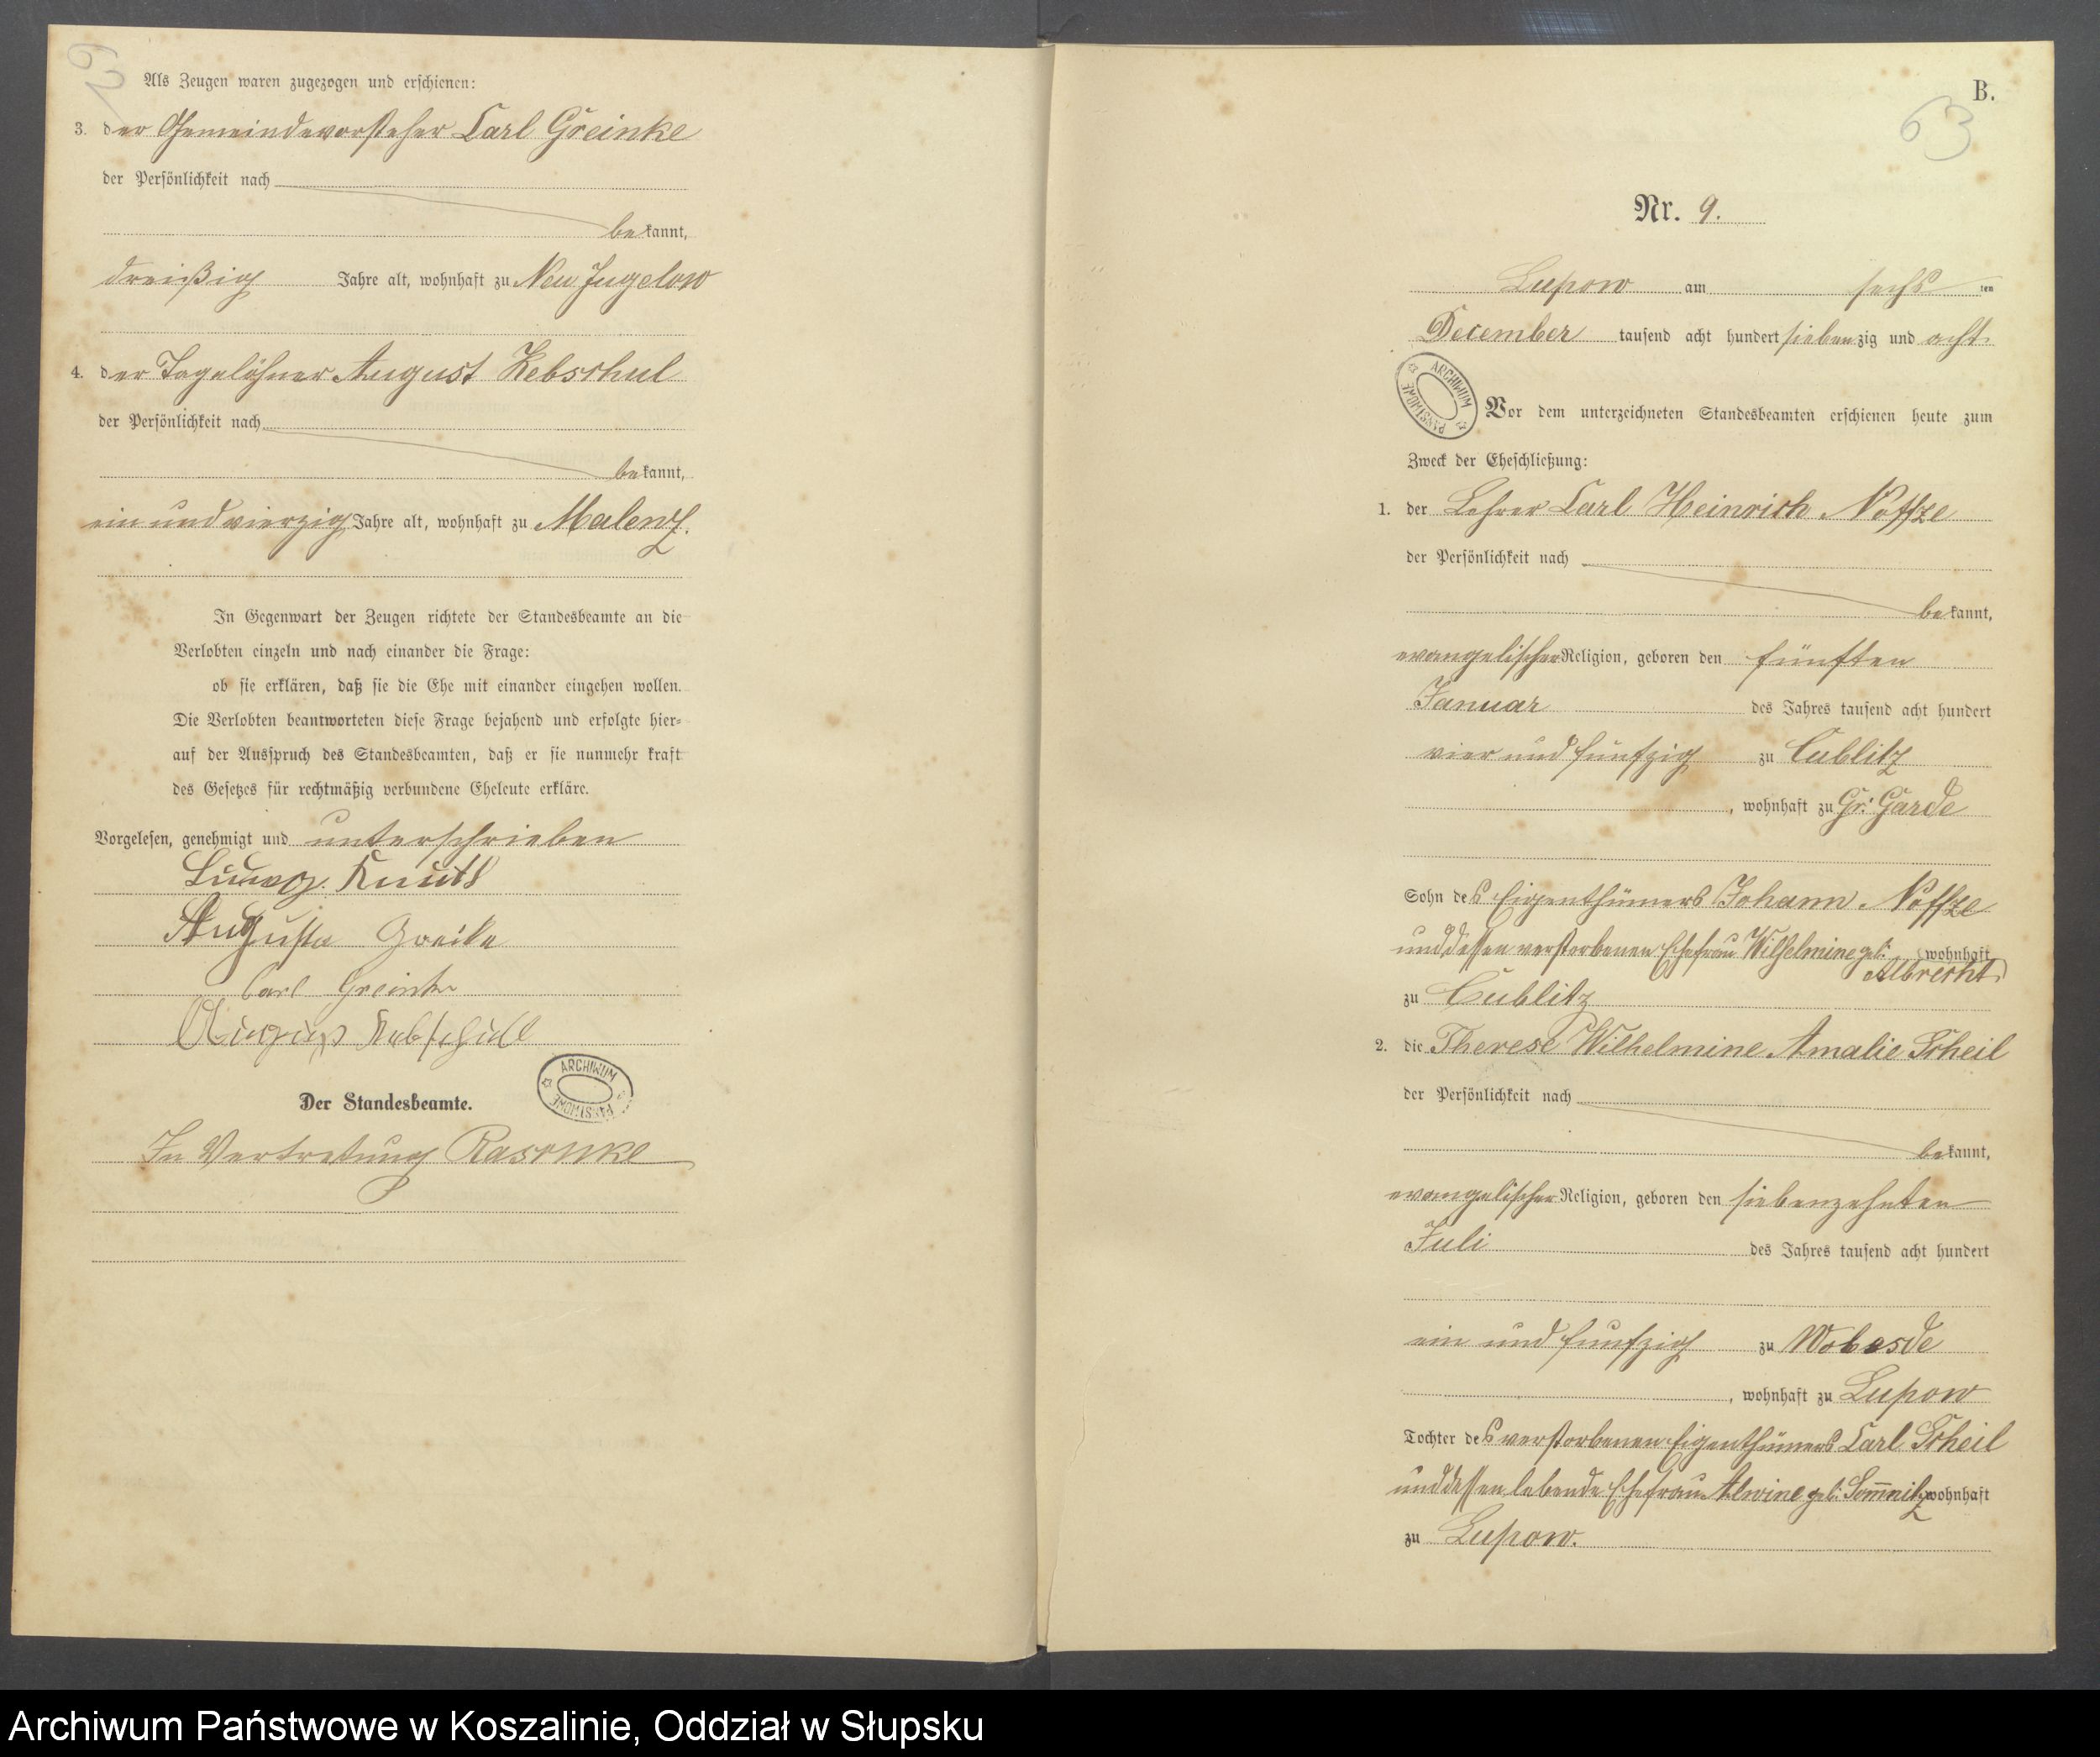 Als Zeugen waren zugezogen und erschienen:
3. der Gemeindevorsteher Carl Greinke
der Persönlichkeit nach
bekannt,
dreißig Jahre alt, wohnhaft zu Neu Jugelow
4. der Tagelöhner August Kebschul
der Persönlichkeit nach
bekannt,
ein und vierzig Jahre alt, wohnhaft zu Malenz.
In Gegenwart der Zeugen richtete der Standesbeamte an die
Verlobten einzeln und nach einander die Frage:
ob sie erklären, daß sie die Ehe mit einander eingehen wollen.
Die Verlobten beantworteten diese Frage bejahend und erfolgte hier-
auf der Ausspruch des Standesbeamten, daß er sie nunmehr kraft
des Gesetzes für rechtmäßig verbundene Eheleute erkläre.
Vorgelesen, genehmigt und unterschrieben
Augusta
Carl Greinke
Kebschull
Der Standesbeamte.
ARCHIWUM PAŃSTWOWE
In Vertretung Raschke
B.
63
Nr. 9.
Lupow am sechsten
December tausend acht hundert siebenzig und acht.
ARCHIWUM PAŃSTWOWE
Vor dem unterzeichneten Standesbeamten erschienen heute zum
Zweck der Eheschließung:
1. der Lehrer Carl Heinrich Noffze
der Persönlichkeit nach
bekannt,
evangelischer Religion, geboren den fünften
Januar des Jahres tausend acht hundert
vier und funfzig zu Cublitz
, wohnhaft zu Gr: Garde
Sohn des Eigenthümers Johann Noffze
und dessen verstorbenen Ehefrau Wilhelmine geb: Albrecht wohnhaft
zu Cublitz
2. die Therese Wilhelmine Amalie Scheil
der Persönlichkeit nach
bekannt,
evangelischer Religion, geboren den siebenzehnten
Juli des Jahres tausend acht hundert
ein und funfzig zu Wobesde
, wohnhaft zu Lupow
Tochter des verstorbenen Eigenthümers Carl Scheil
und dessen lebende Ehefrau Alwine geb: Som̅nitz wohnhaft
zu Lupow.
Archiwum Państwowe w Koszalinie, Oddział w Słupsku